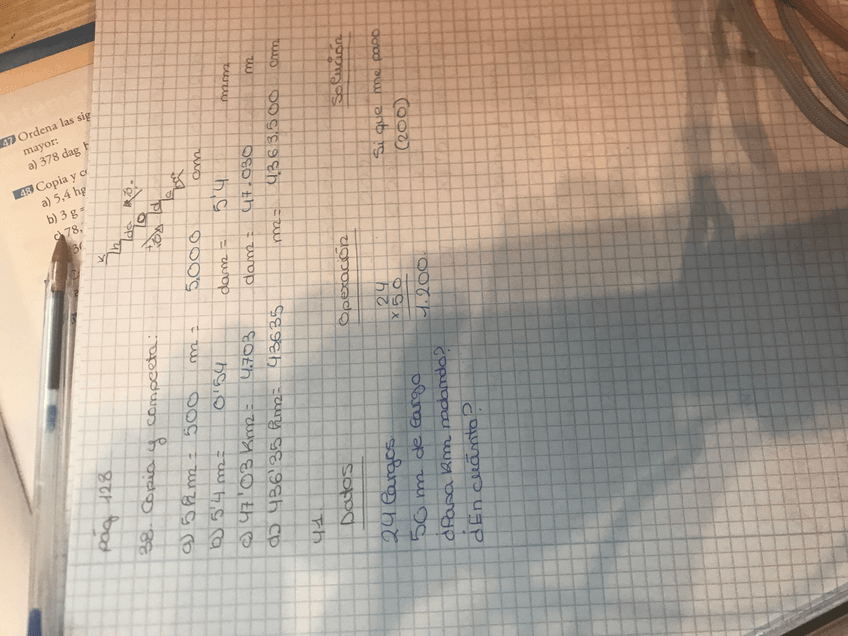 47 Ordena las sig
mayor:
a) 378 dag
48 Copia y c
a) 5,4 hg
b) 3 g =
c) 78,
Pág 128
38. Copia y completa:
k
h
da
d
c
a) 5 hm = 500 m = 5.000 cm
b) 5'4 m = 0'54 dam = 5'4 mm
c) 47'03 Km = 4.703 dam = 47.030 m
d) 436'35 hm = 43635 m = 4.363.500 cm
41.
Datos Operación Solución
24 largos 24 Si que me paso
50 m de largo x50 (200)
¿Pasa Km nadando? 1.200
¿En cuánto?